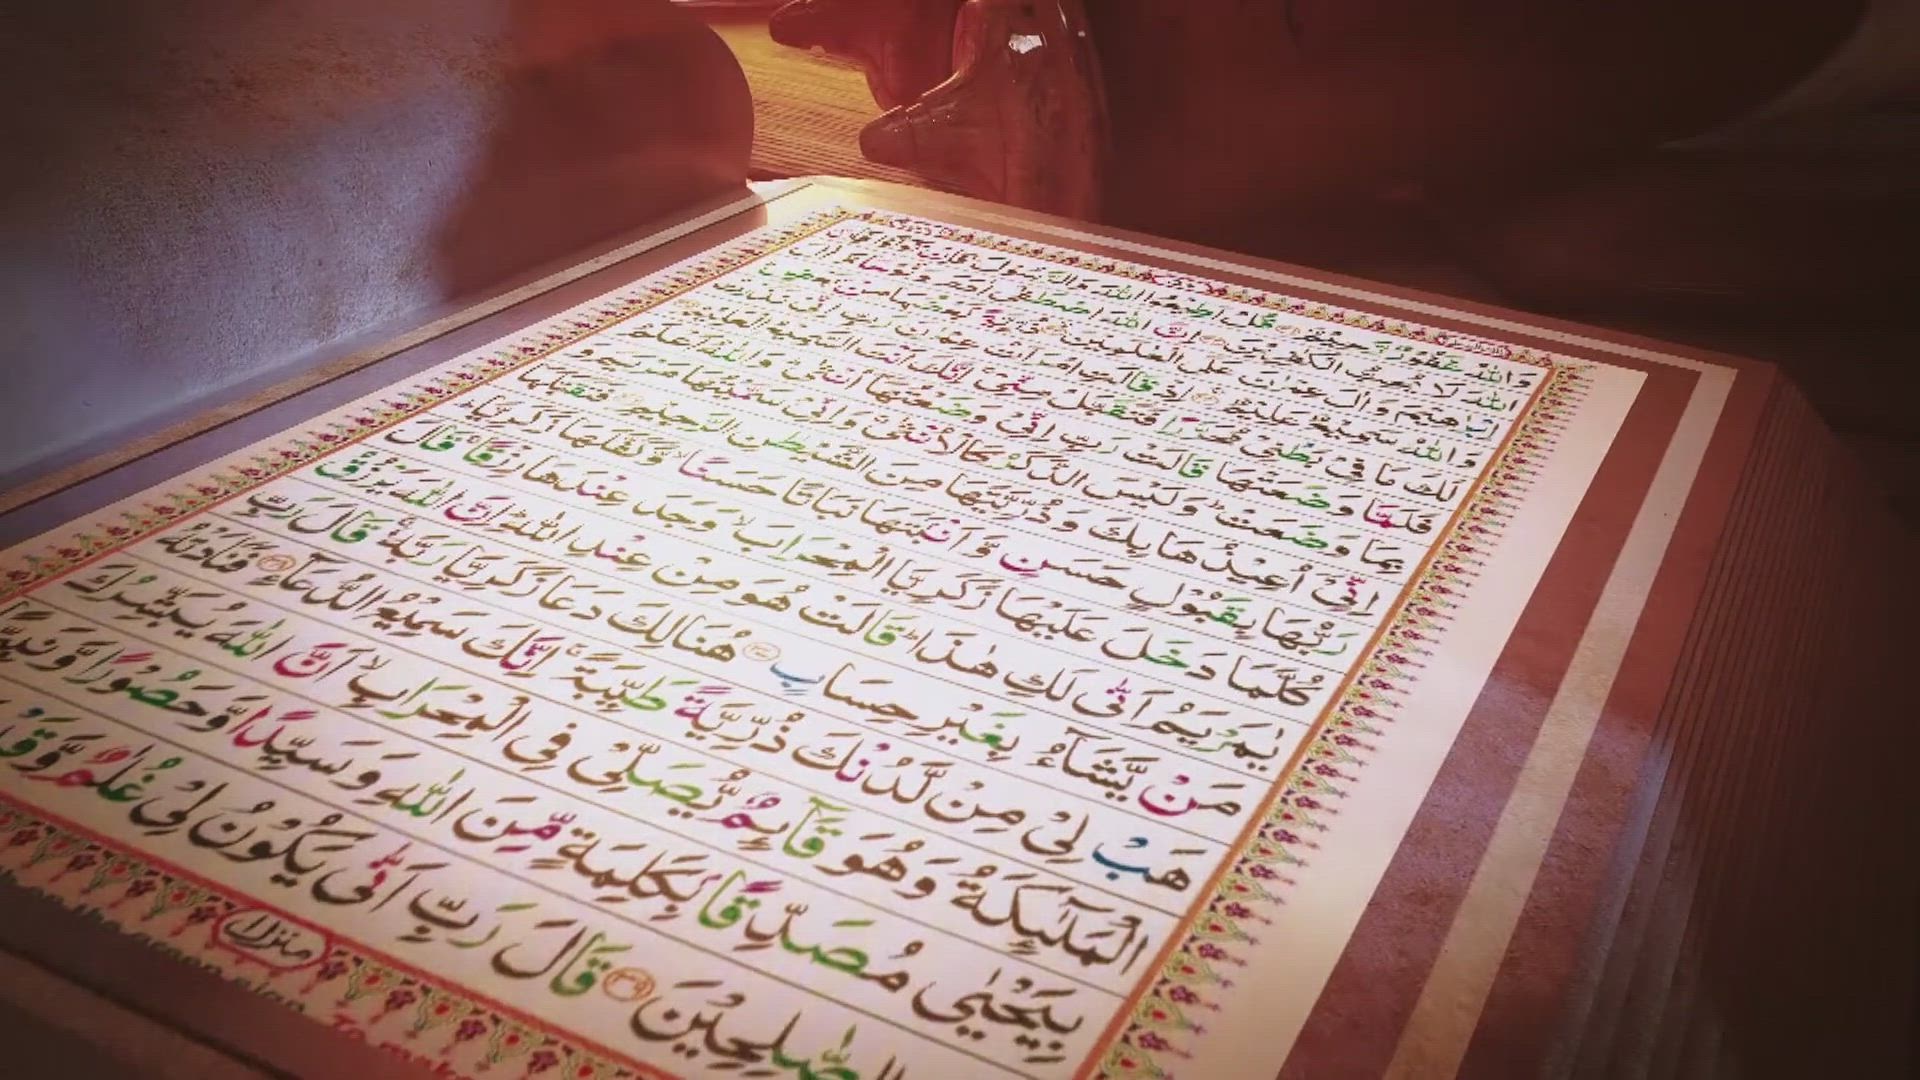 وَاللّٰهُ غَفُوْرٌ رَّحِيْمٌ قُلْ اَطِيْعُوا اللّٰهَ وَالرَّسُوْلَ فَاِنْ تَوَلَّوْا فَاِنَّ
اللّٰهَ لَا يُحِبُّ الْكٰفِرِيْنَ اِنَّ اللّٰهَ اصْطَفٰى اٰدَمَ وَنُوْحًا وَّاٰلَ
اِبْرٰهِيْمَ وَاٰلَ عِمْرٰنَ عَلَى الْعٰلَمِيْنَ ذُرِّيَّةً بَعْضُهَا مِنْ بَعْضٍ
وَاللّٰهُ سَمِيْعٌ عَلِيْمٌ اِذْ قَالَتِ امْرَاَتُ عِمْرٰنَ رَبِّ اِنِّىْ نَذَرْتُ
لَكَ مَا فِىْ بَطْنِىْ مُحَرَّرًا فَتَقَبَّلْ مِنِّىْ اِنَّكَ اَنْتَ السَّمِيْعُ الْعَلِيْمُ
فَلَمَّا وَضَعَتْهَا قَالَتْ رَبِّ اِنِّىْ وَضَعْتُهَا اُنْثٰى وَاللّٰهُ اَعْلَمُ
بِمَا وَضَعَتْ وَلَيْسَ الذَّكَرُ كَالْاُنْثٰى وَاِنِّىْ سَمَّيْتُهَا مَرْيَمَ وَ
اِنِّىْٓ اُعِيْذُهَا بِكَ وَذُرِّيَّتَهَا مِنَ الشَّيْطٰنِ الرَّجِيْمِ فَتَقَبَّلَهَا
رَبُّهَا بِقَبُوْلٍ حَسَنٍ وَّاَنْۢبَتَهَا نَبَاتًا حَسَنًا وَّكَفَّلَهَا زَكَرِيَّا
كُلَّمَا دَخَلَ عَلَيْهَا زَكَرِيَّا الْمِحْرَابَ وَجَدَ عِنْدَهَا رِزْقًا قَالَ
يٰمَرْيَمُ اَنّٰى لَكِ هٰذَا قَالَتْ هُوَ مِنْ عِنْدِ اللّٰهِ اِنَّ اللّٰهَ يَرْزُقُ
مَنْ يَّشَآءُ بِغَيْرِ حِسَابٍ ﴿٣٧﴾ هُنَالِكَ دَعَا زَكَرِيَّا رَبَّهٗ قَالَ رَبِّ
هَبْ لِىْ مِنْ لَّدُنْكَ ذُرِّيَّةً طَيِّبَةً اِنَّكَ سَمِيْعُ الدُّعَآءِ ﴿٣٨﴾ فَنَادَتْهُ
الْمَلٰٓئِكَةُ وَهُوَ قَآئِمٌ يُّصَلِّىْ فِى الْمِحْرَابِ اَنَّ اللّٰهَ يُبَشِّرُكَ
بِيَحْيٰى مُصَدِّقًا بِكَلِمَةٍ مِّنَ اللّٰهِ وَسَيِّدًا وَّحَصُوْرًا وَّنَبِيًّا
الصّٰلِحِيْنَ ﴿٣٩﴾ قَالَ رَبِّ اَنّٰى يَكُوْنُ لِىْ غُلٰمٌ وَّقَدْ
منزل ١